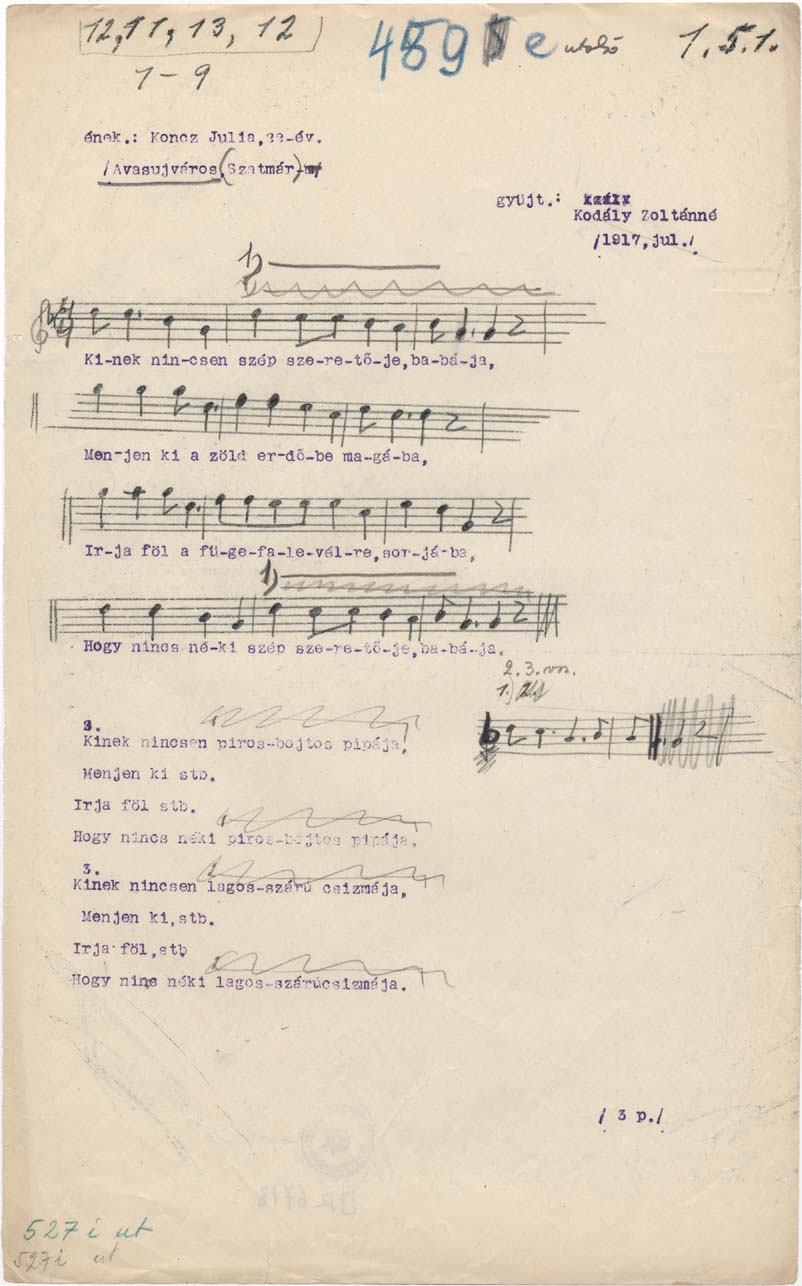 12, 11, 13, 12
1-9
459 e utolsó
1.5.1.
ének.: Koncz Julia,33-év.
/Avasujváros(Szatmár)
gyüjt.:
Kodály Zoltánné
/1917,jul./
1)
Ki-nek nin-csen szép sze-re-tő-je,ba-bá-ja,
Men-jen ki a zöld er-dő-be ma-gá-ba,
Ir-ja föl a fü-ge-fa-le-vél-re,sor-já-ba,
1)
Hogy nincs né-ki szép sze-re-tő-je,ba-bá-ja.
2.3.vsz.
1.)
2.
Kinek nincsen piros-bojtos pipája,
Menjen ki stb.
Irja föl stb.
Hogy nincs néki piros-bojtos pipája.
3.
Kinek nincsen lagos-szárú csizmája,
Menjen ki,stb.
Irja föl,stb
Hogy nins néki lagos-szárúcsizmája.
/ 3 p./
527 i ut
527i ut